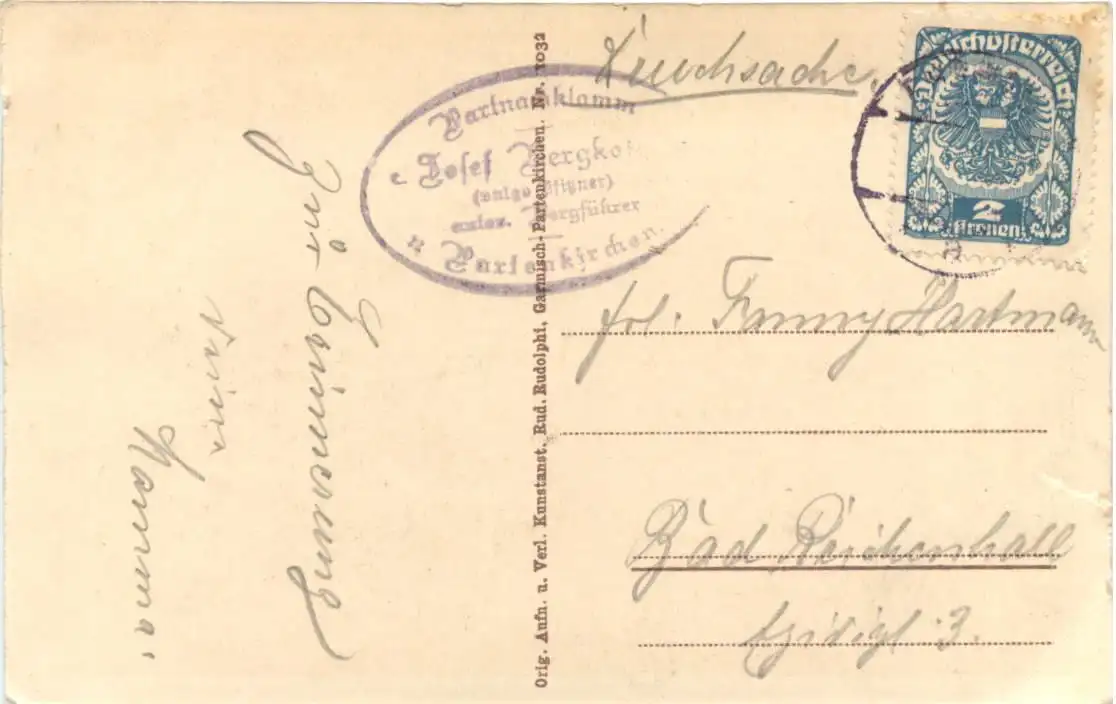 Drucksache.
Deutschösterreich
2
Kronen.
Partnachklamm
Josef
(vulgo Pfitzner)
autor. Bergführer
Partenkirchen.
Orig. Aufn. u. Verl. Kunstanst. Rud. Rudolphi, Garmisch-Partenkirchen. Nr. 1032
Zur Erinnerung
Mama
frl. Fanny Hartmann
Bad Reichenhall
3.